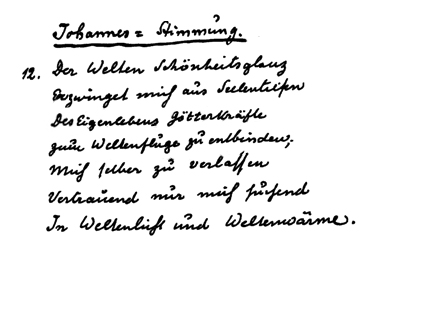 Johannes = Stimmung.
12. Der Welten Schönheitsglanz
Bezwinget mich aus Seelentiefen
Des Eigenlebens Götterkräfte
zum Weltenfluge zu entbinden;
Mich selber zu verlassen
Vertrauend nur mich suchend
In Weltenlicht und Weltenwärme.